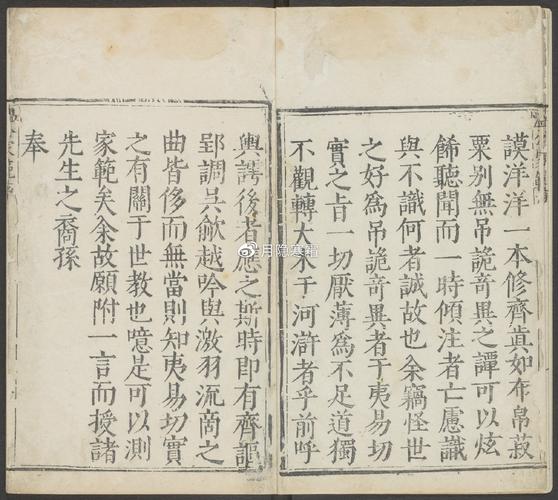 謨洋洋一本修齊真如布帛菽
粟别無吊詭竒異之譚可以炫
餙聽聞而一時傾注者亡慮識
與不識何者誠故也余竊怪世
之好為吊詭竒異者于夷易切
實之㫖一切厭薄為不足道獨
不觀轉大木于河滸者乎前呼
輿謣後者應之斯時即有齊謳
郢調吳歈越吟與激羽流商之
曲皆侈而無當則知夷易切實
之有關于世教也噫是可以測
家範矣余故願附一言而授諸
先生之裔孫
奉
@月隐寒霜